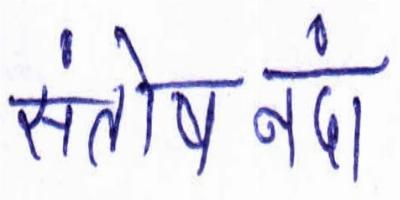 संतोष नंदा